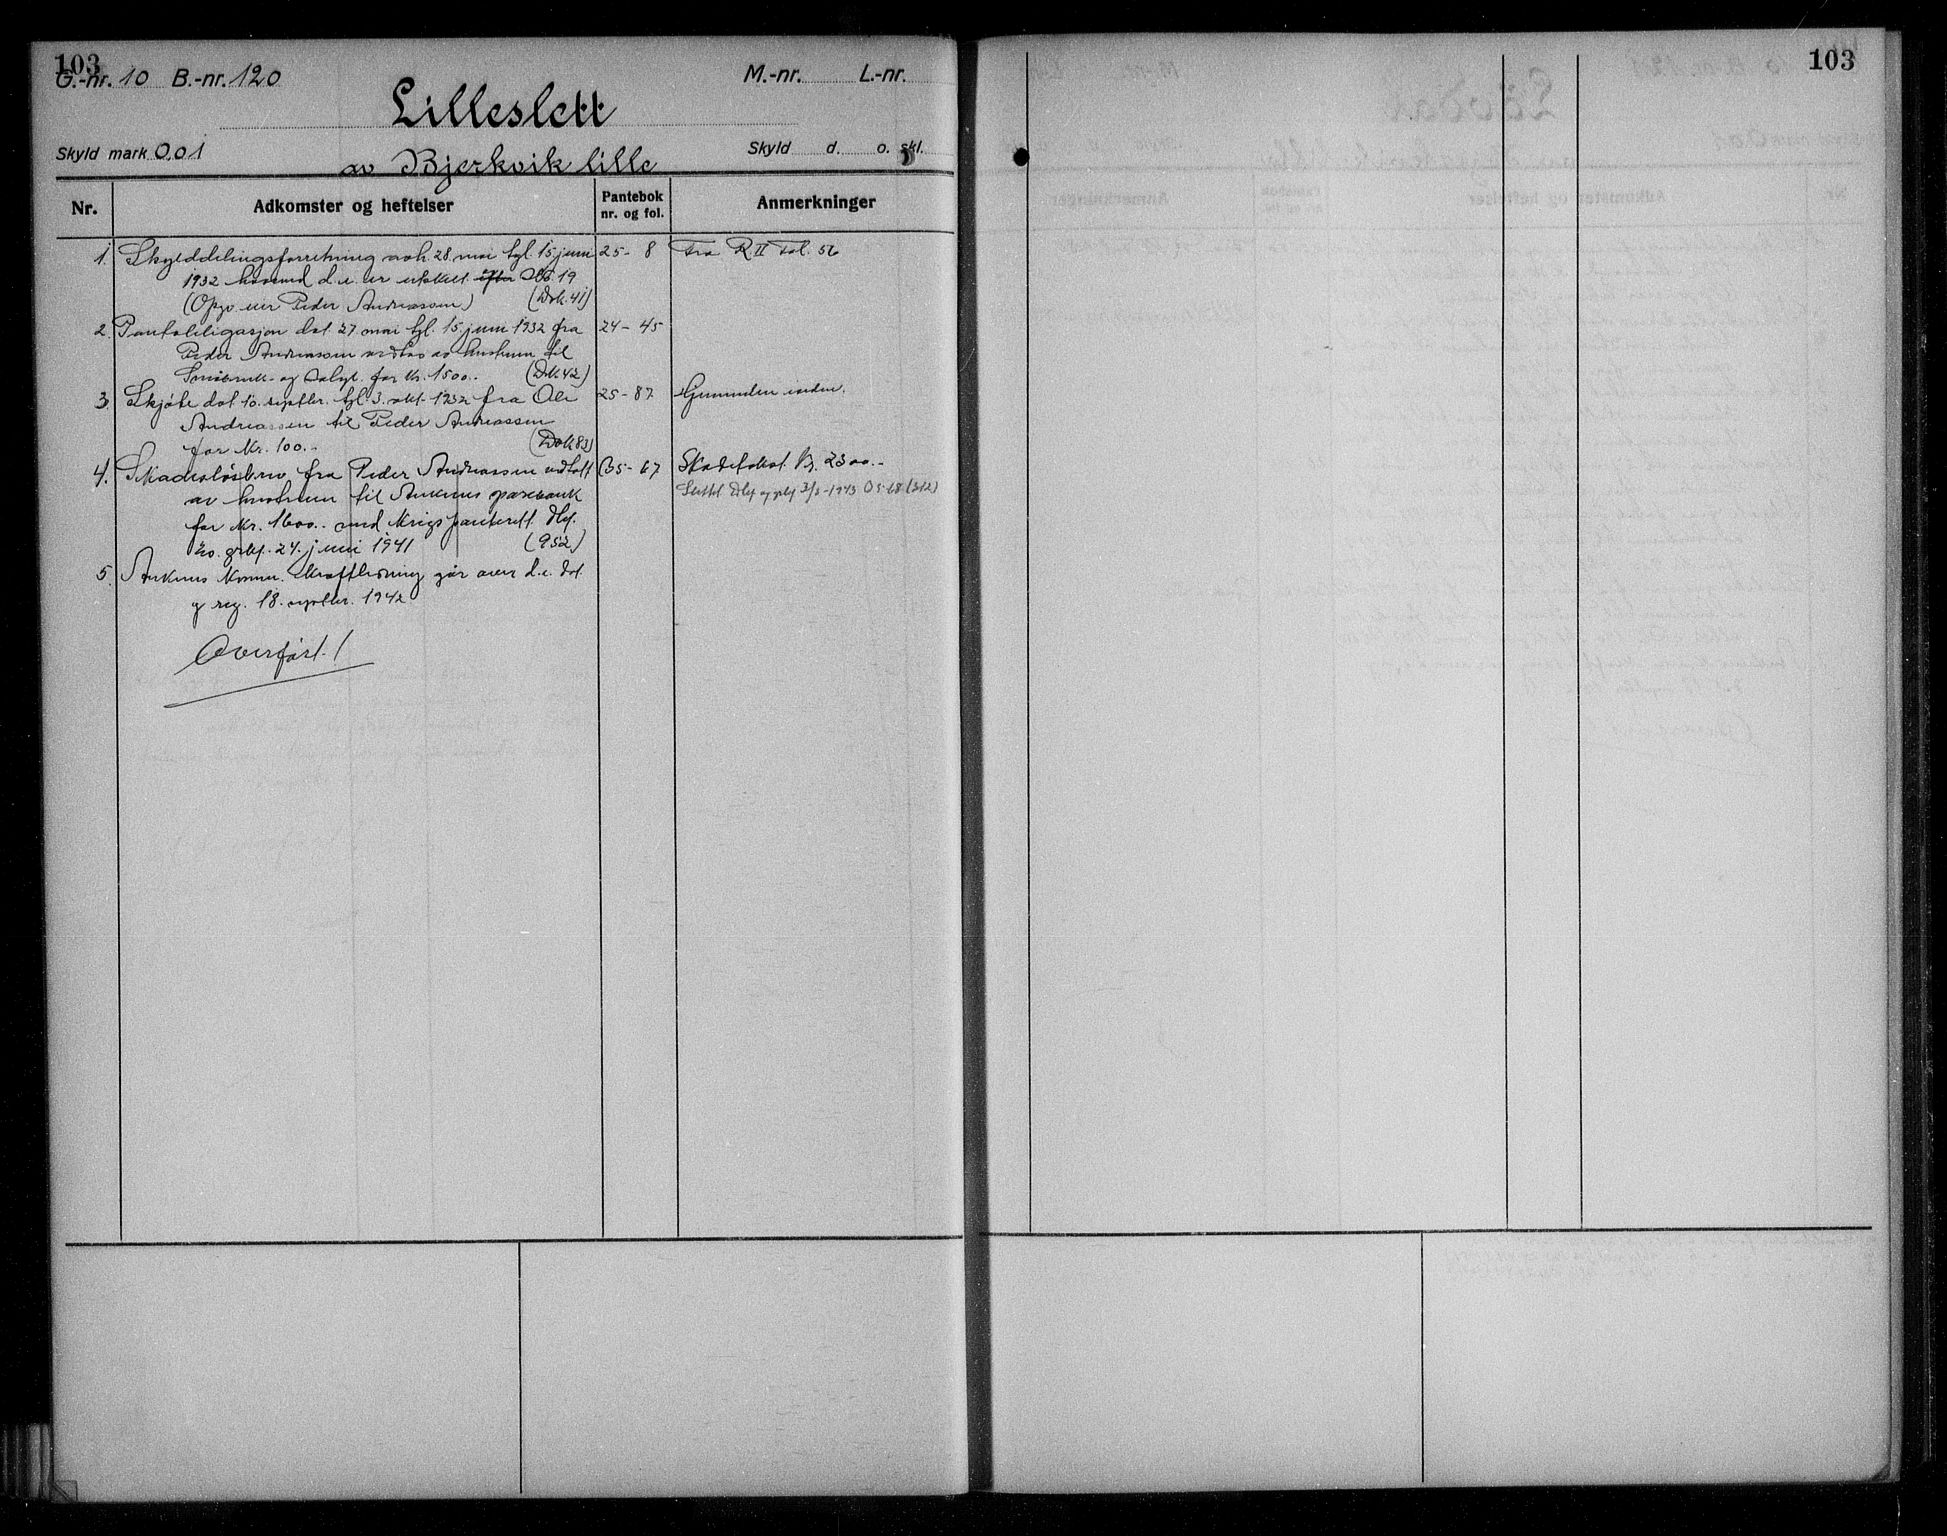 103
G.-nr. 10 B.-nr. 120 M.-nr. L.-nr.
Lilleslett
Skyld mark 0.01 Skyld d. o. skl.
av Bjerkvik lille
Nr. Adkomster og heftelser Pantebok nr. og fol. Anmerkninger
1. Skylddelingsforretning avh. 28. mai tgl. 15. juni 25 - 8 Fra R. II Fol. 56
1932 hvorved d.e. er utskilt Bno. 19
(Opgo. eier Peder Andreassen) (Dok. 41)
2. Pantobligasjon dat. 27. mai tgl. 15. juni 1932 fra 24 - 45
Peder Andreassen vedtat av hustruen til
Småbruk- og for kr. 1500.- (Dok 42)
3. Skjøte dat 10. septbr. tgl. 3. okt. 1932 fra Ole 25 - 87 Grunnden
Andreassen til Peder Andreassen
for kr. 100.- (Dok 83)
4. Skadesløsbrev fra Peder Andreassen vedtatt B5 - 67 Skadetakst kr. 2300.-
av hustruen til Ankenes sparebank
for kr. 1600.- med krigspanterett. Dbf.
20. 24. juni 1941 (952)
5. Ankenes Komm. kraftledning går over d.e. Dat.
og reg. 18. septbr. 1942
Overført!
103